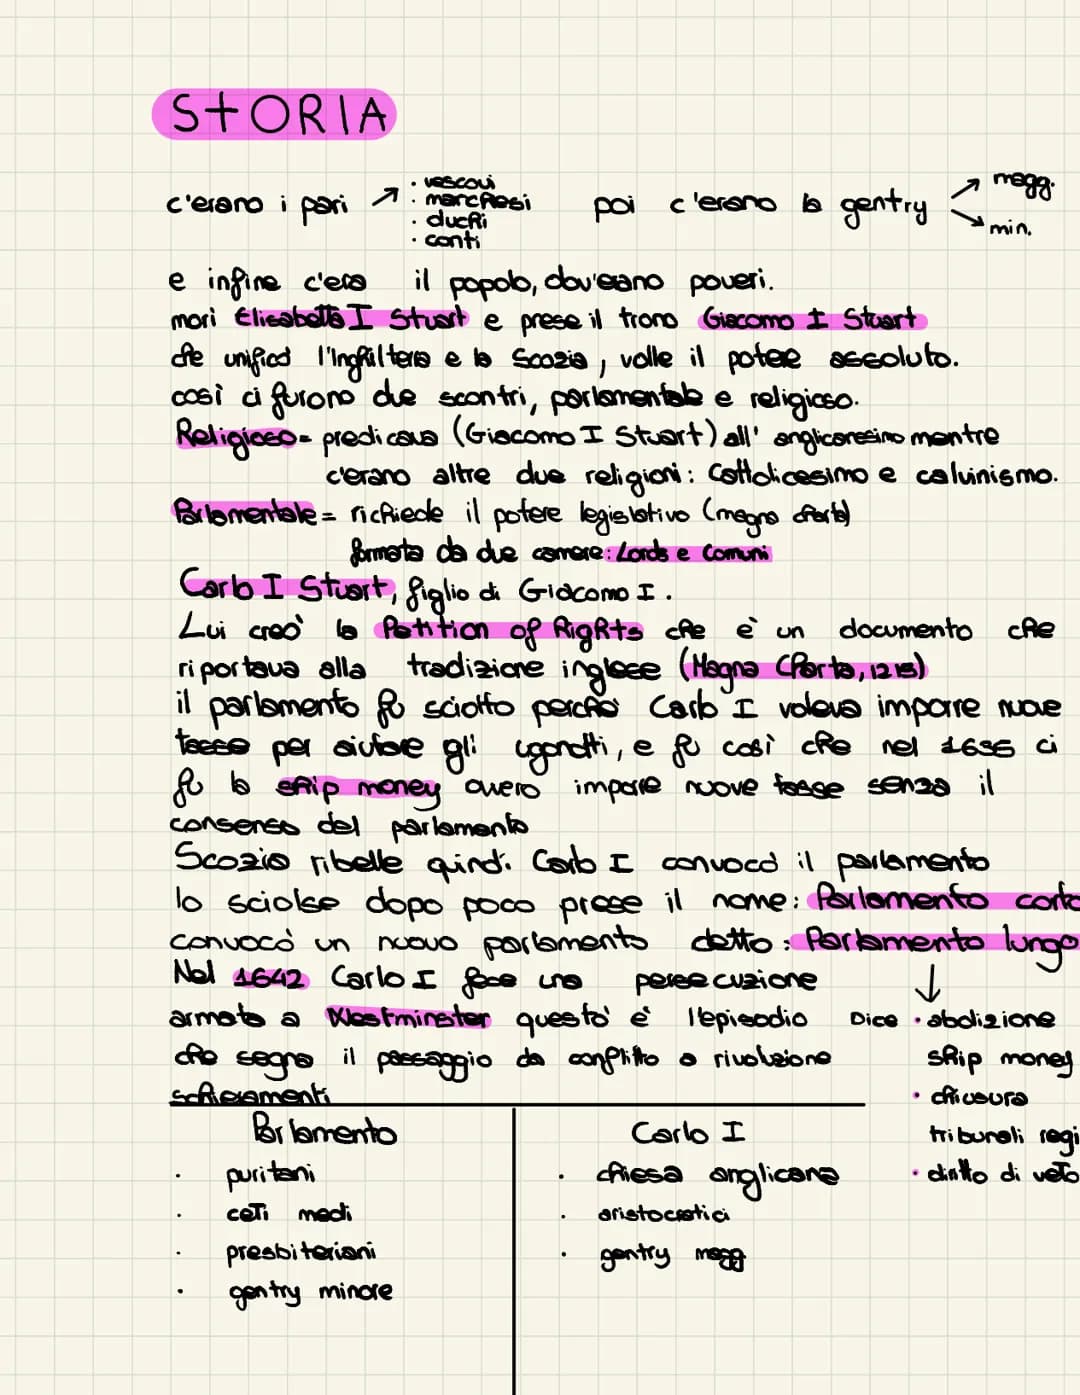 STORIA
c'erano i pari → · vescovi
· marchesi
· duchi
· conti
poi c'erano la gentry → magg.
→ min.
e infine c'era il popolo, dov'erano poveri.
morì Elisabetta I Stuart e prese il trono Giacomo I Stuart
che unificò l'Inghilterra e la Scozia, volle il potere assoluto.
così ci furono due scontri, parlamentale e religioso.
Religioso = predicava (Giacomo I Stuart) all' anglicanesimo mentre
c'erano altre due religioni: Cattolicesimo e calvinismo.
Parlamentale = richiede il potere legislativo (magna charta)
formata da due camere: Lords e Comuni
Carlo I Stuart, figlio di Giacomo I.
Lui creò la Petition of Rights che è un documento che
riportava alla tradizione inglese (Magna Charta, 1215)
il parlamento fu sciolto perché Carlo I voleva imporre nuove
tasse per aiutare gli ugonotti, e fu così che nel 1636 ci
fu la ship money ovvero imporre nuove tasse senza il
consenso del parlamento
Scozia ribelle quindi Carlo I convocò il parlamento
lo sciolse dopo poco prese il nome: Parlamento corto
convocò un nuovo parlamento detto: Parlamento lungo
Nel 1642 Carlo I fece una persecuzione ↓
armata a Westminster questo è l'episodio Dice · abolizione
che segna il passaggio da conflitto a rivoluzione ship money
schieramenti · chiusura
Parlamento Carlo I tribunali regi
· puritani · chiesa anglicana · diritto di veto
· ceti medi · aristocratici
· presbiteriani · gentry magg
· gentry minore